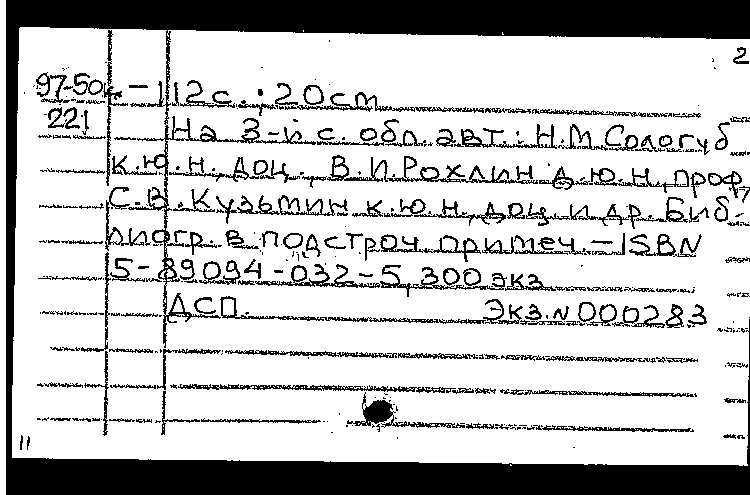 2
97-50
221
— 112 с. ; 20 см
На 3-й с. обл. авт.: Н.М. Сологуб
к.ю.н., доц., В.И. Рохлин д.ю.н., проф.,
С.В. Кузьмин к.ю.н., доц. и др. Биб-
лиогр. в подстроч. примеч. — ISBN
5-89094-032-5, 300 экз
ДСП. Экз. N 000283
11